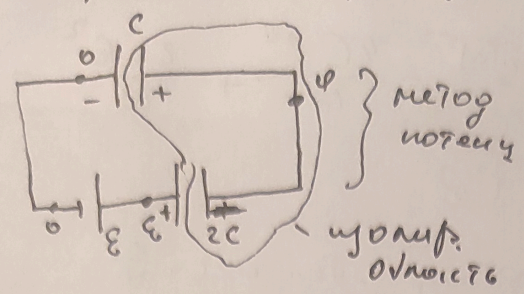 C
0
φ
-
+
метод
потенц
0
ℰ
ℰ
+
2C
изолир.
область